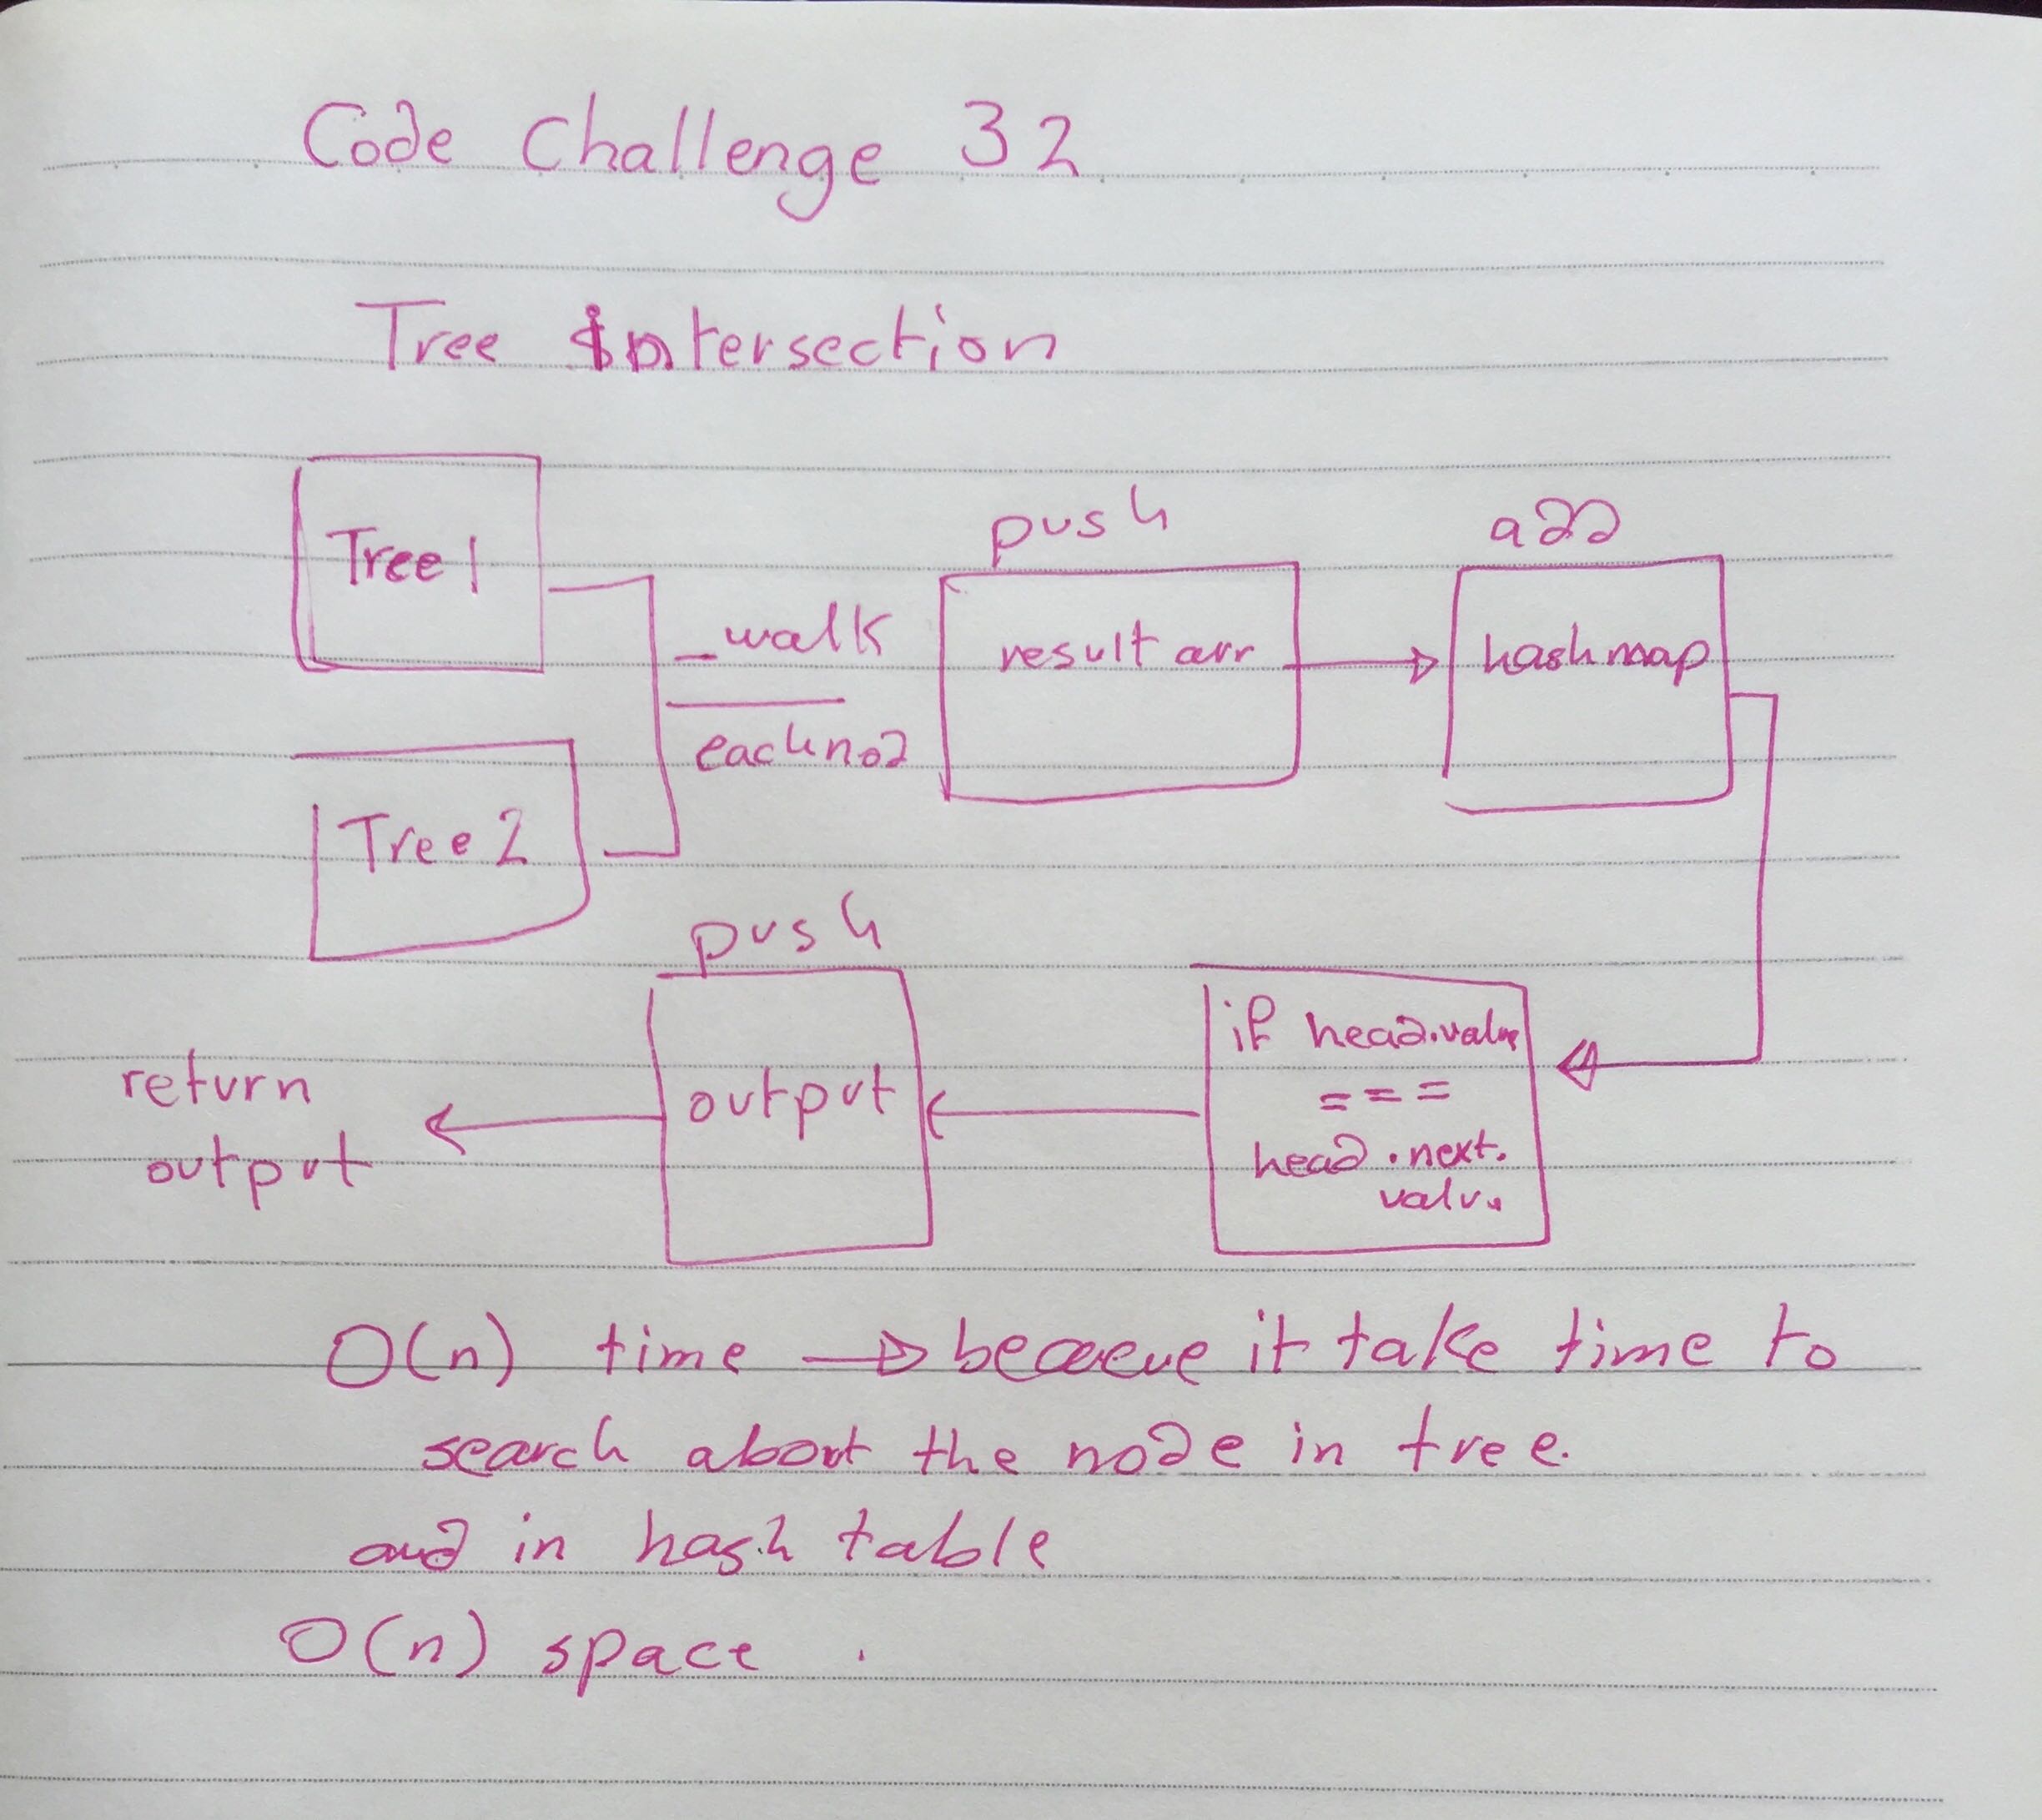 Code Challenge 32
Tree Intersection
Tree 1
_walk
each nod
push
result arr
add
hashmap
Tree 2
if head.value
===
head.next.
valu.
push
output
return
output
O(n) time → it take time to
search about the node in tree.
and in hash table
O(n) space .